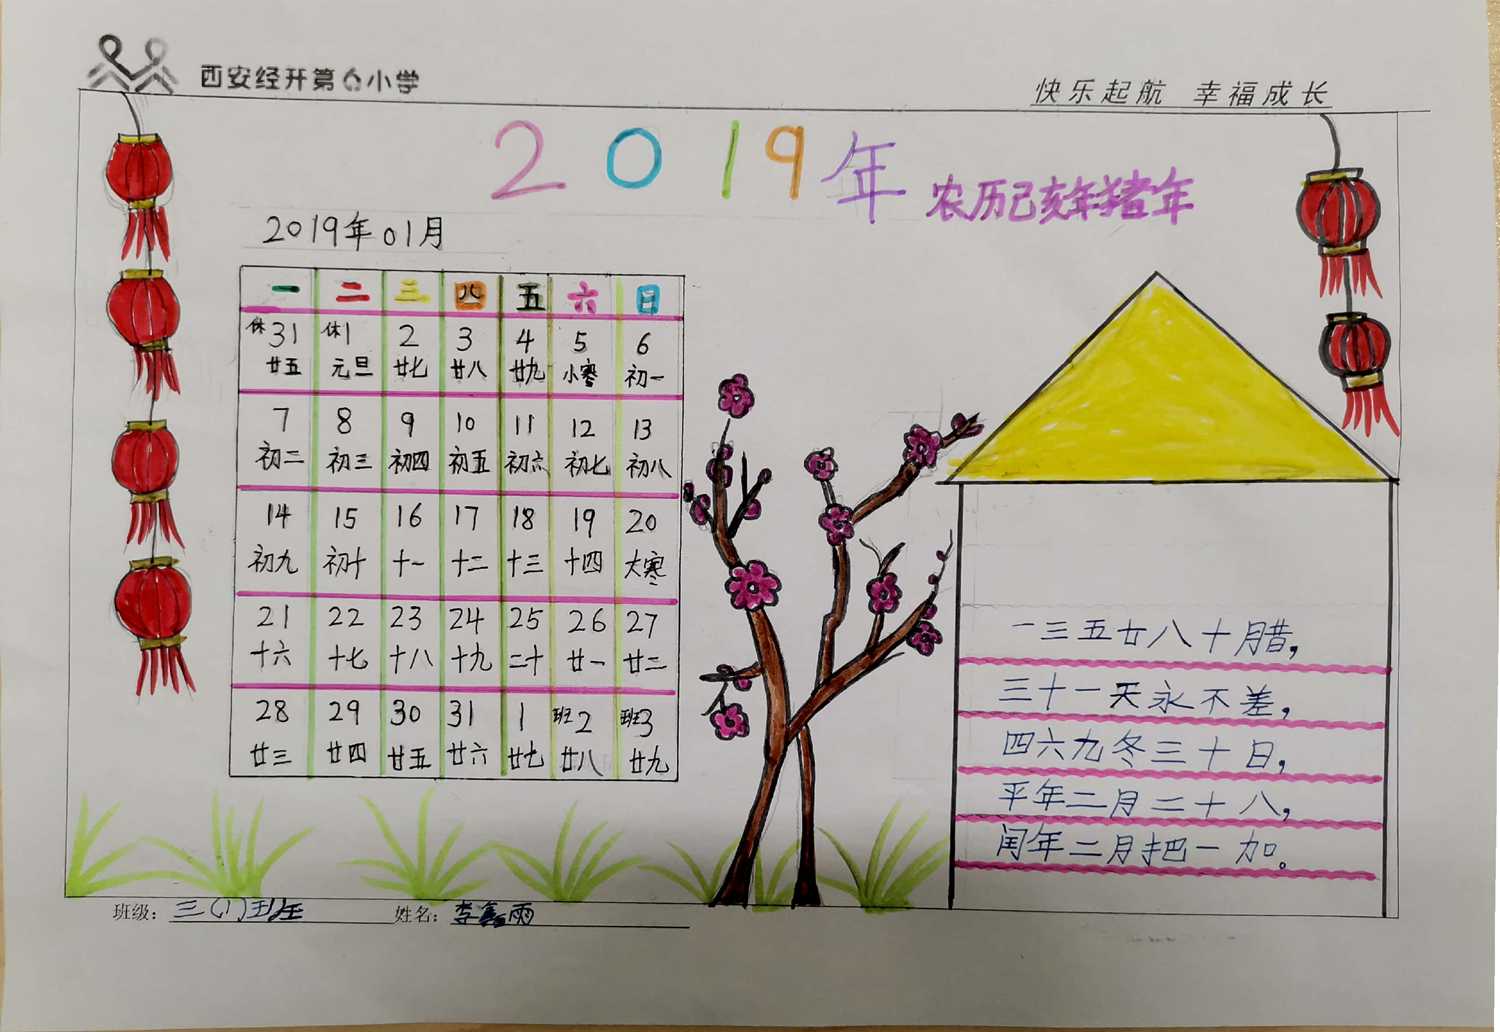 西安经开第6小学
快乐起航 幸福成长
2019年 农历己亥年猪年
2019年01月
一 二 三 四 五 六 日
休31 休1 2 3 4 5 6
廿五 元旦 廿七 廿八 廿九 小寒 初一
7 8 9 10 11 12 13
初二 初三 初四 初五 初六 初七 初八
14 15 16 17 18 19 20
初九 初十 十一 十二 十三 十四 大寒
21 22 23 24 25 26 27
十六 十七 十八 十九 二十 廿一 廿二
28 29 30 31 1 班2 班3
廿三 廿四 廿五 廿六 廿七 廿八 廿九
一三五廿八十月腊，
三十一天永不差，
四六九冬三十日，
平年二月二十八，
闰年二月把一加。
班级：三（1）班
姓名：李鑫雨